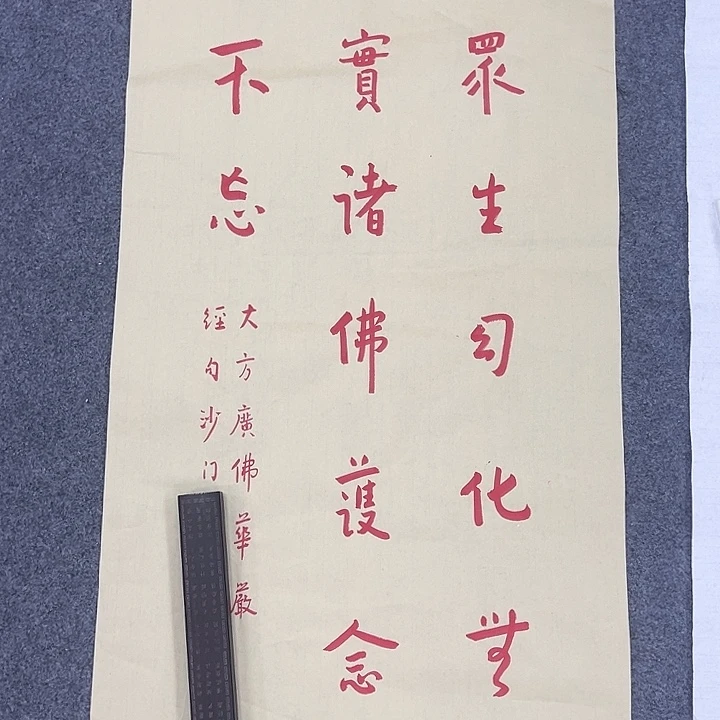 眾生幻化無
實諸佛護念
不忘
大方廣佛華嚴
經句沙门